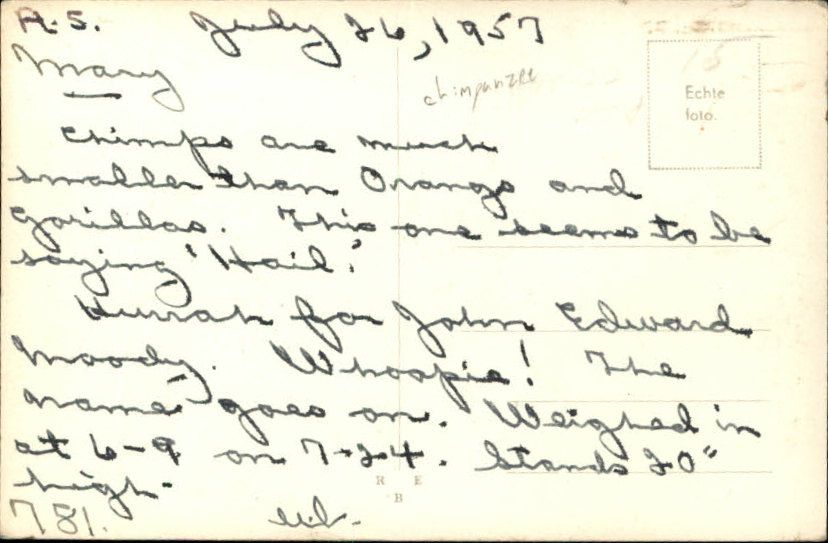 R.S. July 26, 1957
Mary
chimpanzee
Echte
foto.
Chimps are much
smaller than Orangs and
Gorillas. This one seems to be
saying 'Hail'.
Hurrah for John Edward
Moody. Whoopie! The
name goes on. Weighed in
at 6-9 on 7-24. Stands 20"
high.
R E
B
781.